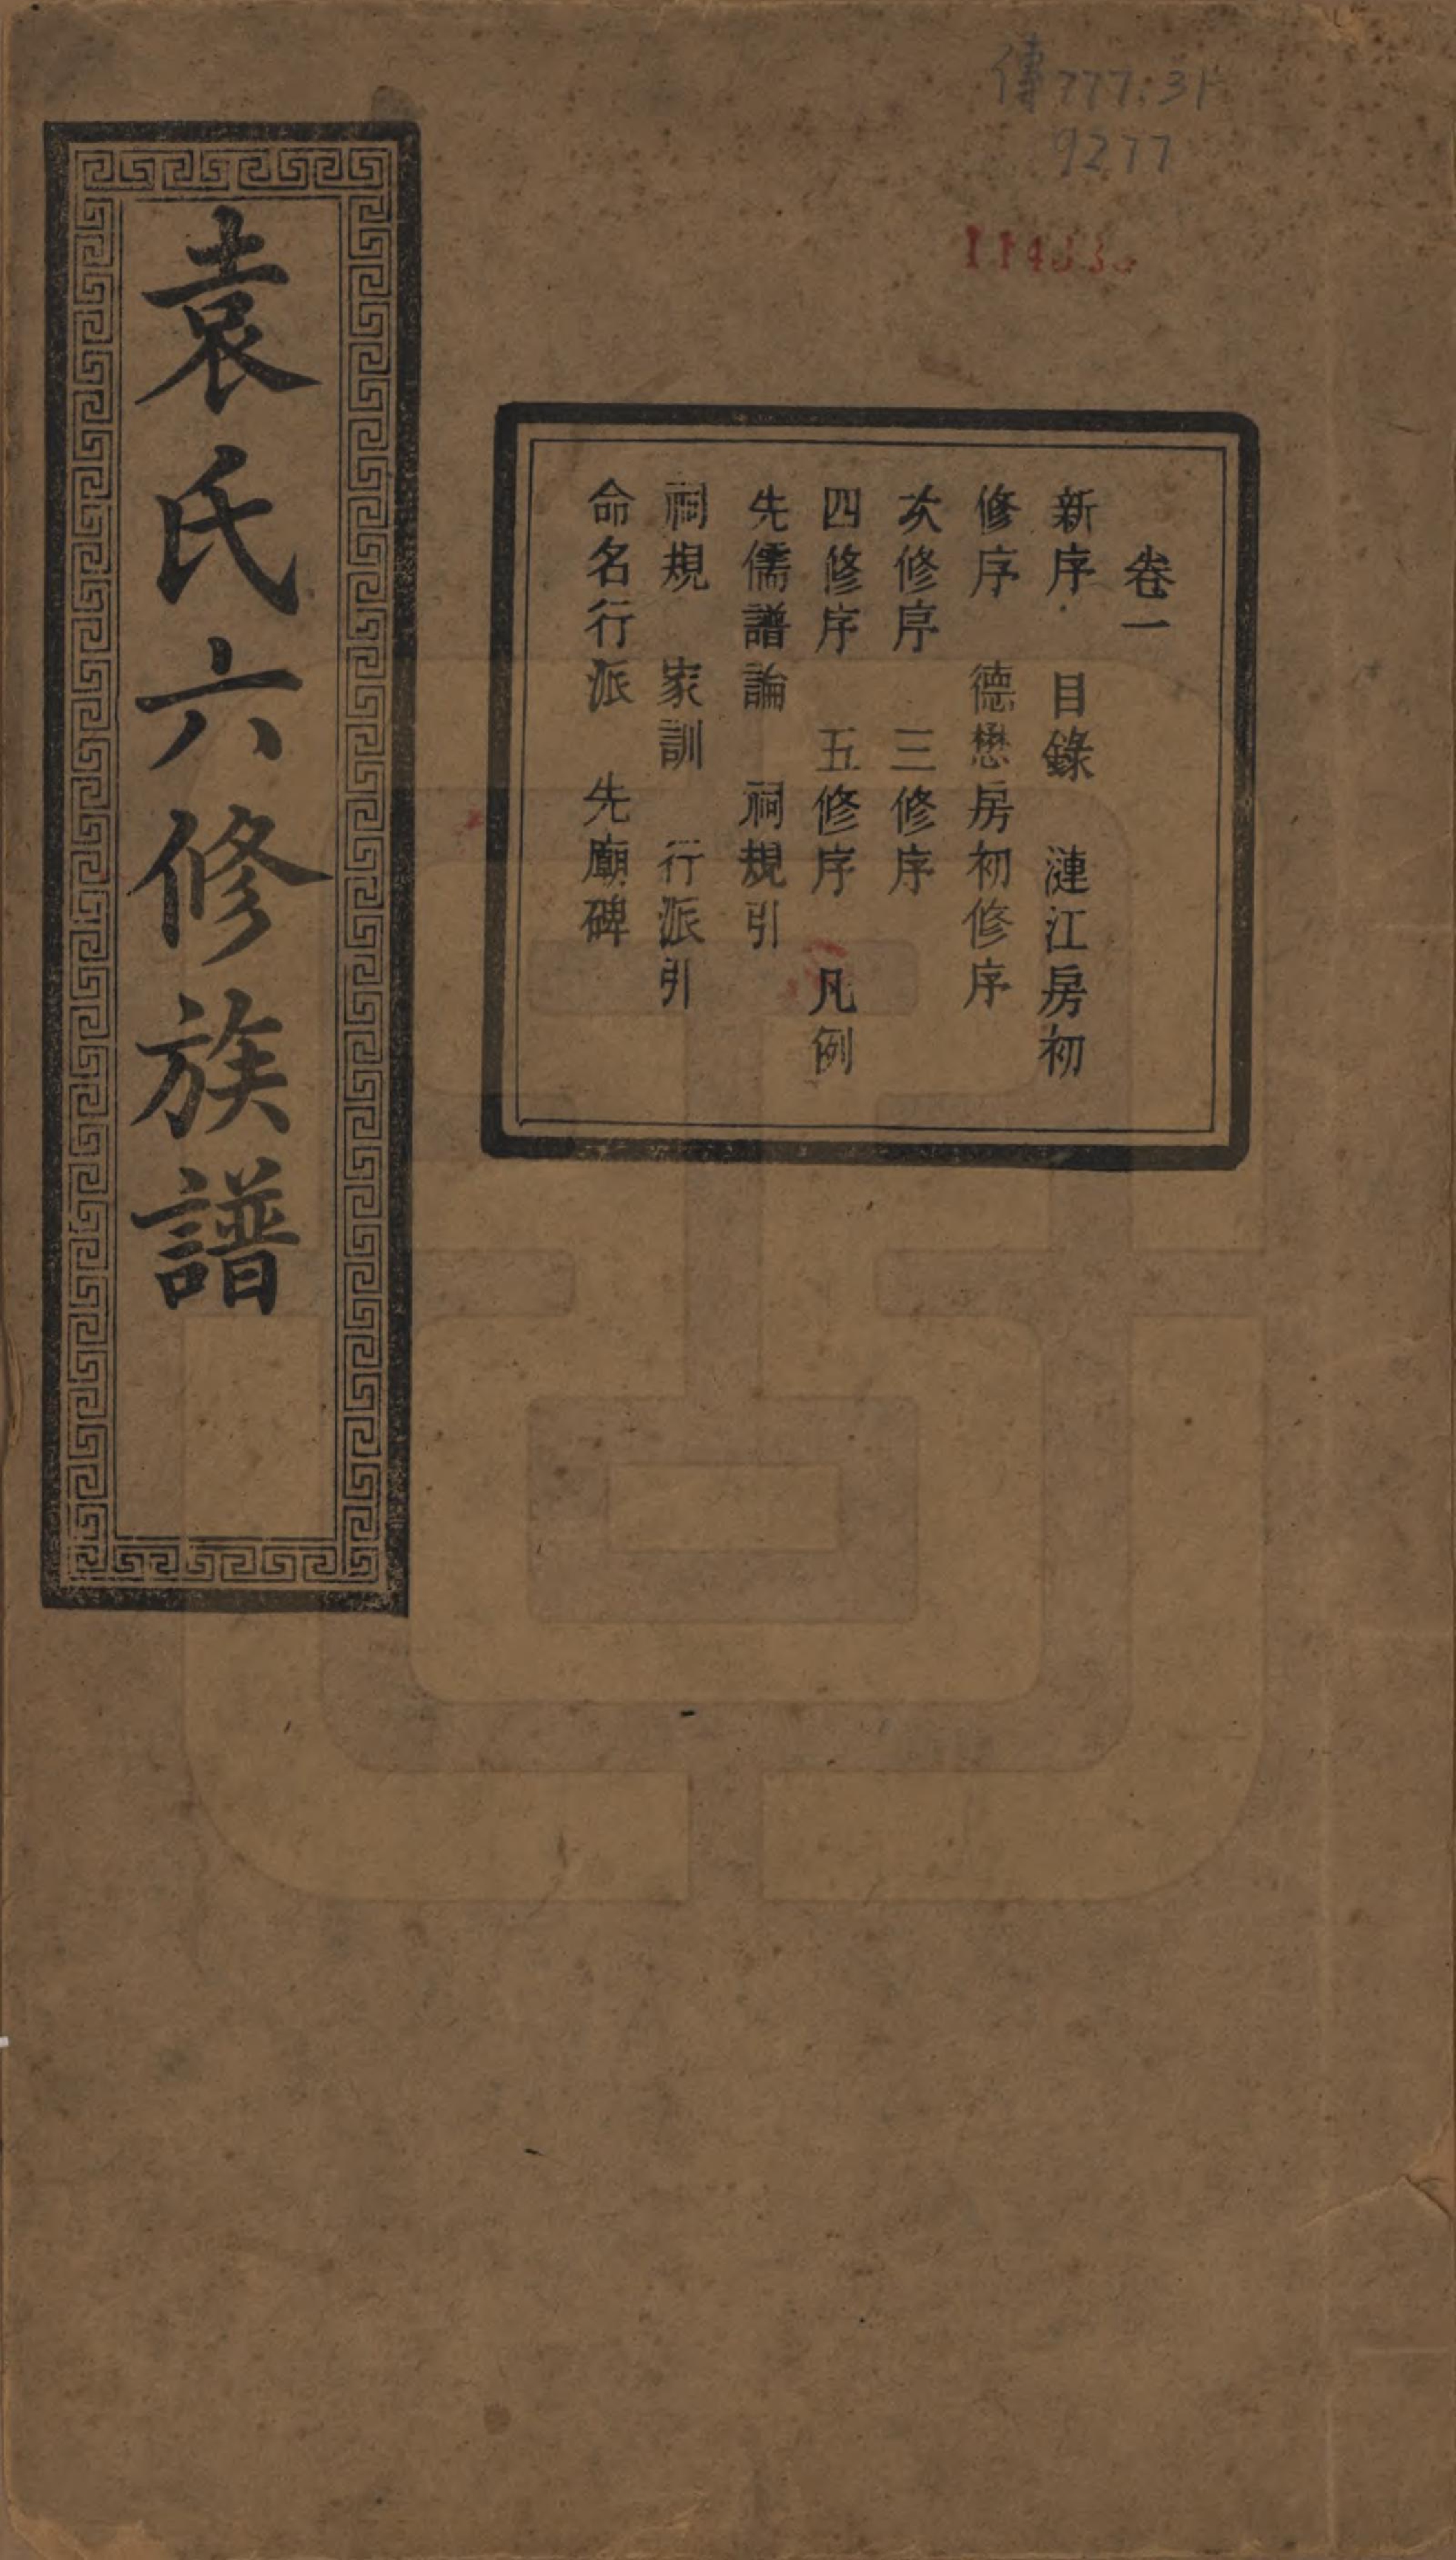 傳777.31
9277
卷一
新序 目錄 漣江房初
修序 德懋房初修序
次修序 三修序
四修序 五修序 凡例
先儒譜論 祠規引
祠規 家訓 行派引
命名行派 先廟碑
袁氏六修族譜